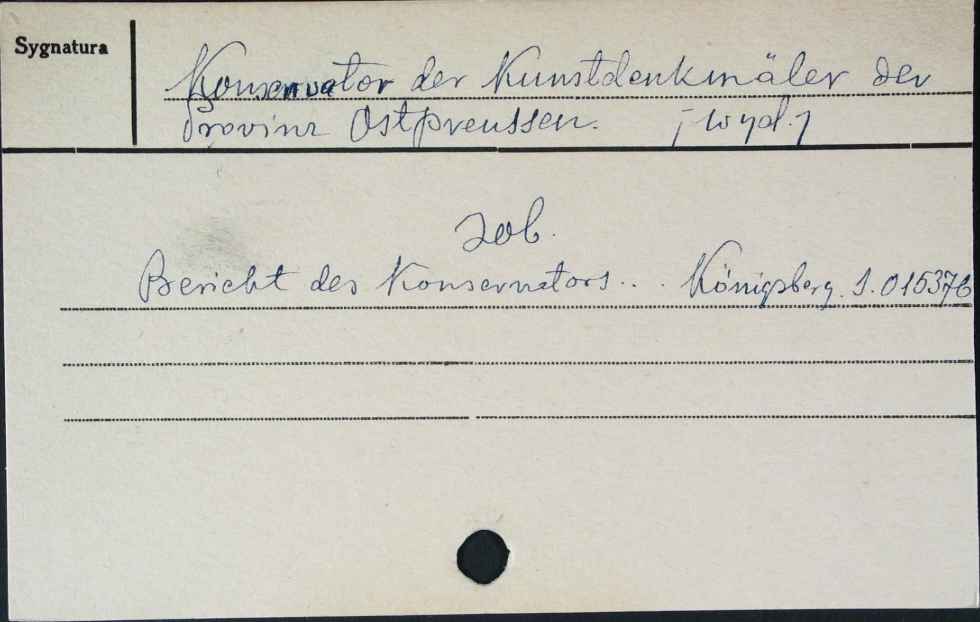 Sygnatura
Konservator der Kunstdenkmäler der
Provinz Ostpreussen. [wyd.]
zob.
Bericht des Konservators... Königsberg. S.015376